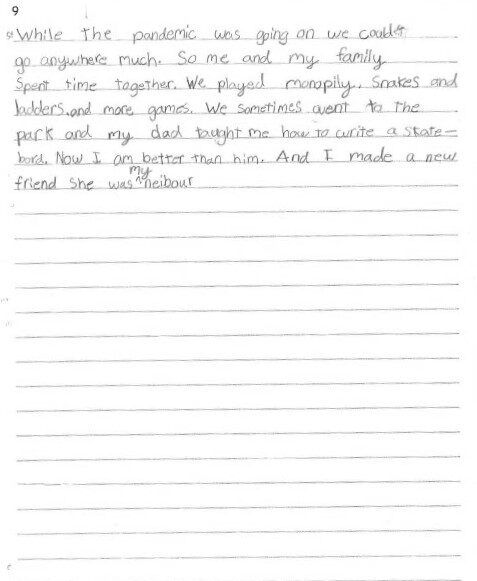 9
While the pandemic was going on we could't
go anywhere much. So me and my family
Spent time together. We played monapily, Snakes and
ladders, and more games. We sometimes went to the
park and my dad taught me how to write a skate-
bord. Now I am better than him. And I made a new
friend She was my neibour